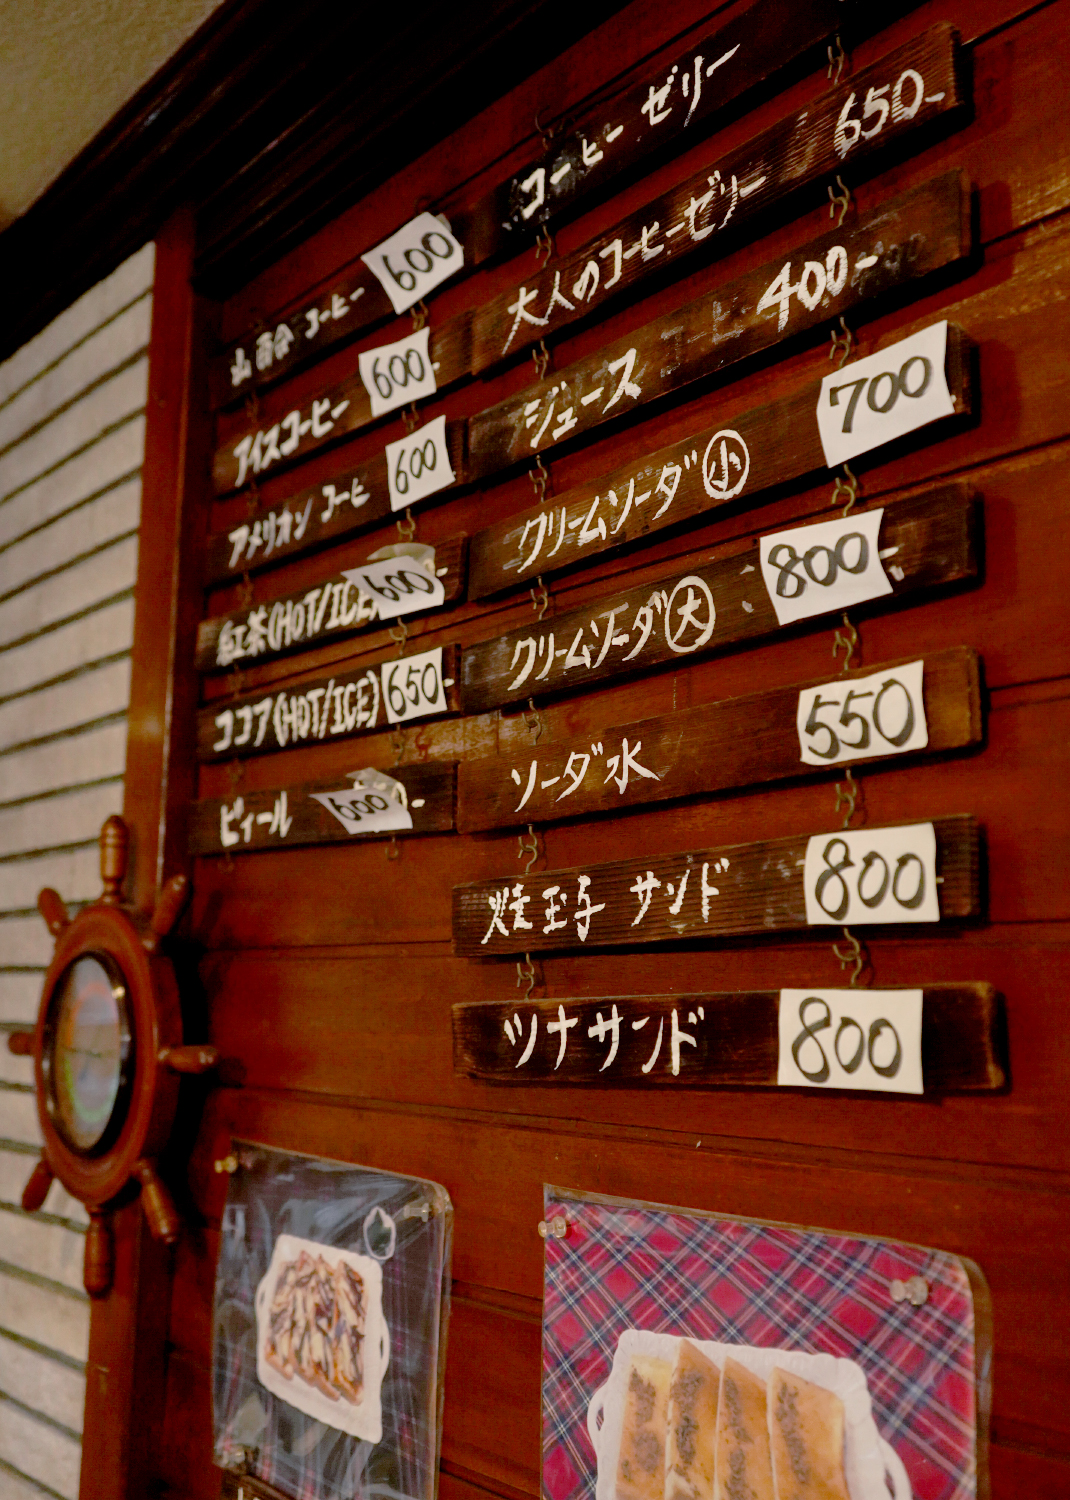 山百合 コーヒー 600
アイスコーヒー 600
アメリカン コーヒー 600
紅茶(HOT/ICE) 600
ココア(HOT/ICE) 650
ビィール 600
コーヒー ゼリー
大人のコーヒーゼリー 650
ジュース 400
クリームソーダ 小 700
クリームソーダ 大 800
ソーダ水 550
焼玉子 サンド 800
ツナサンド 800